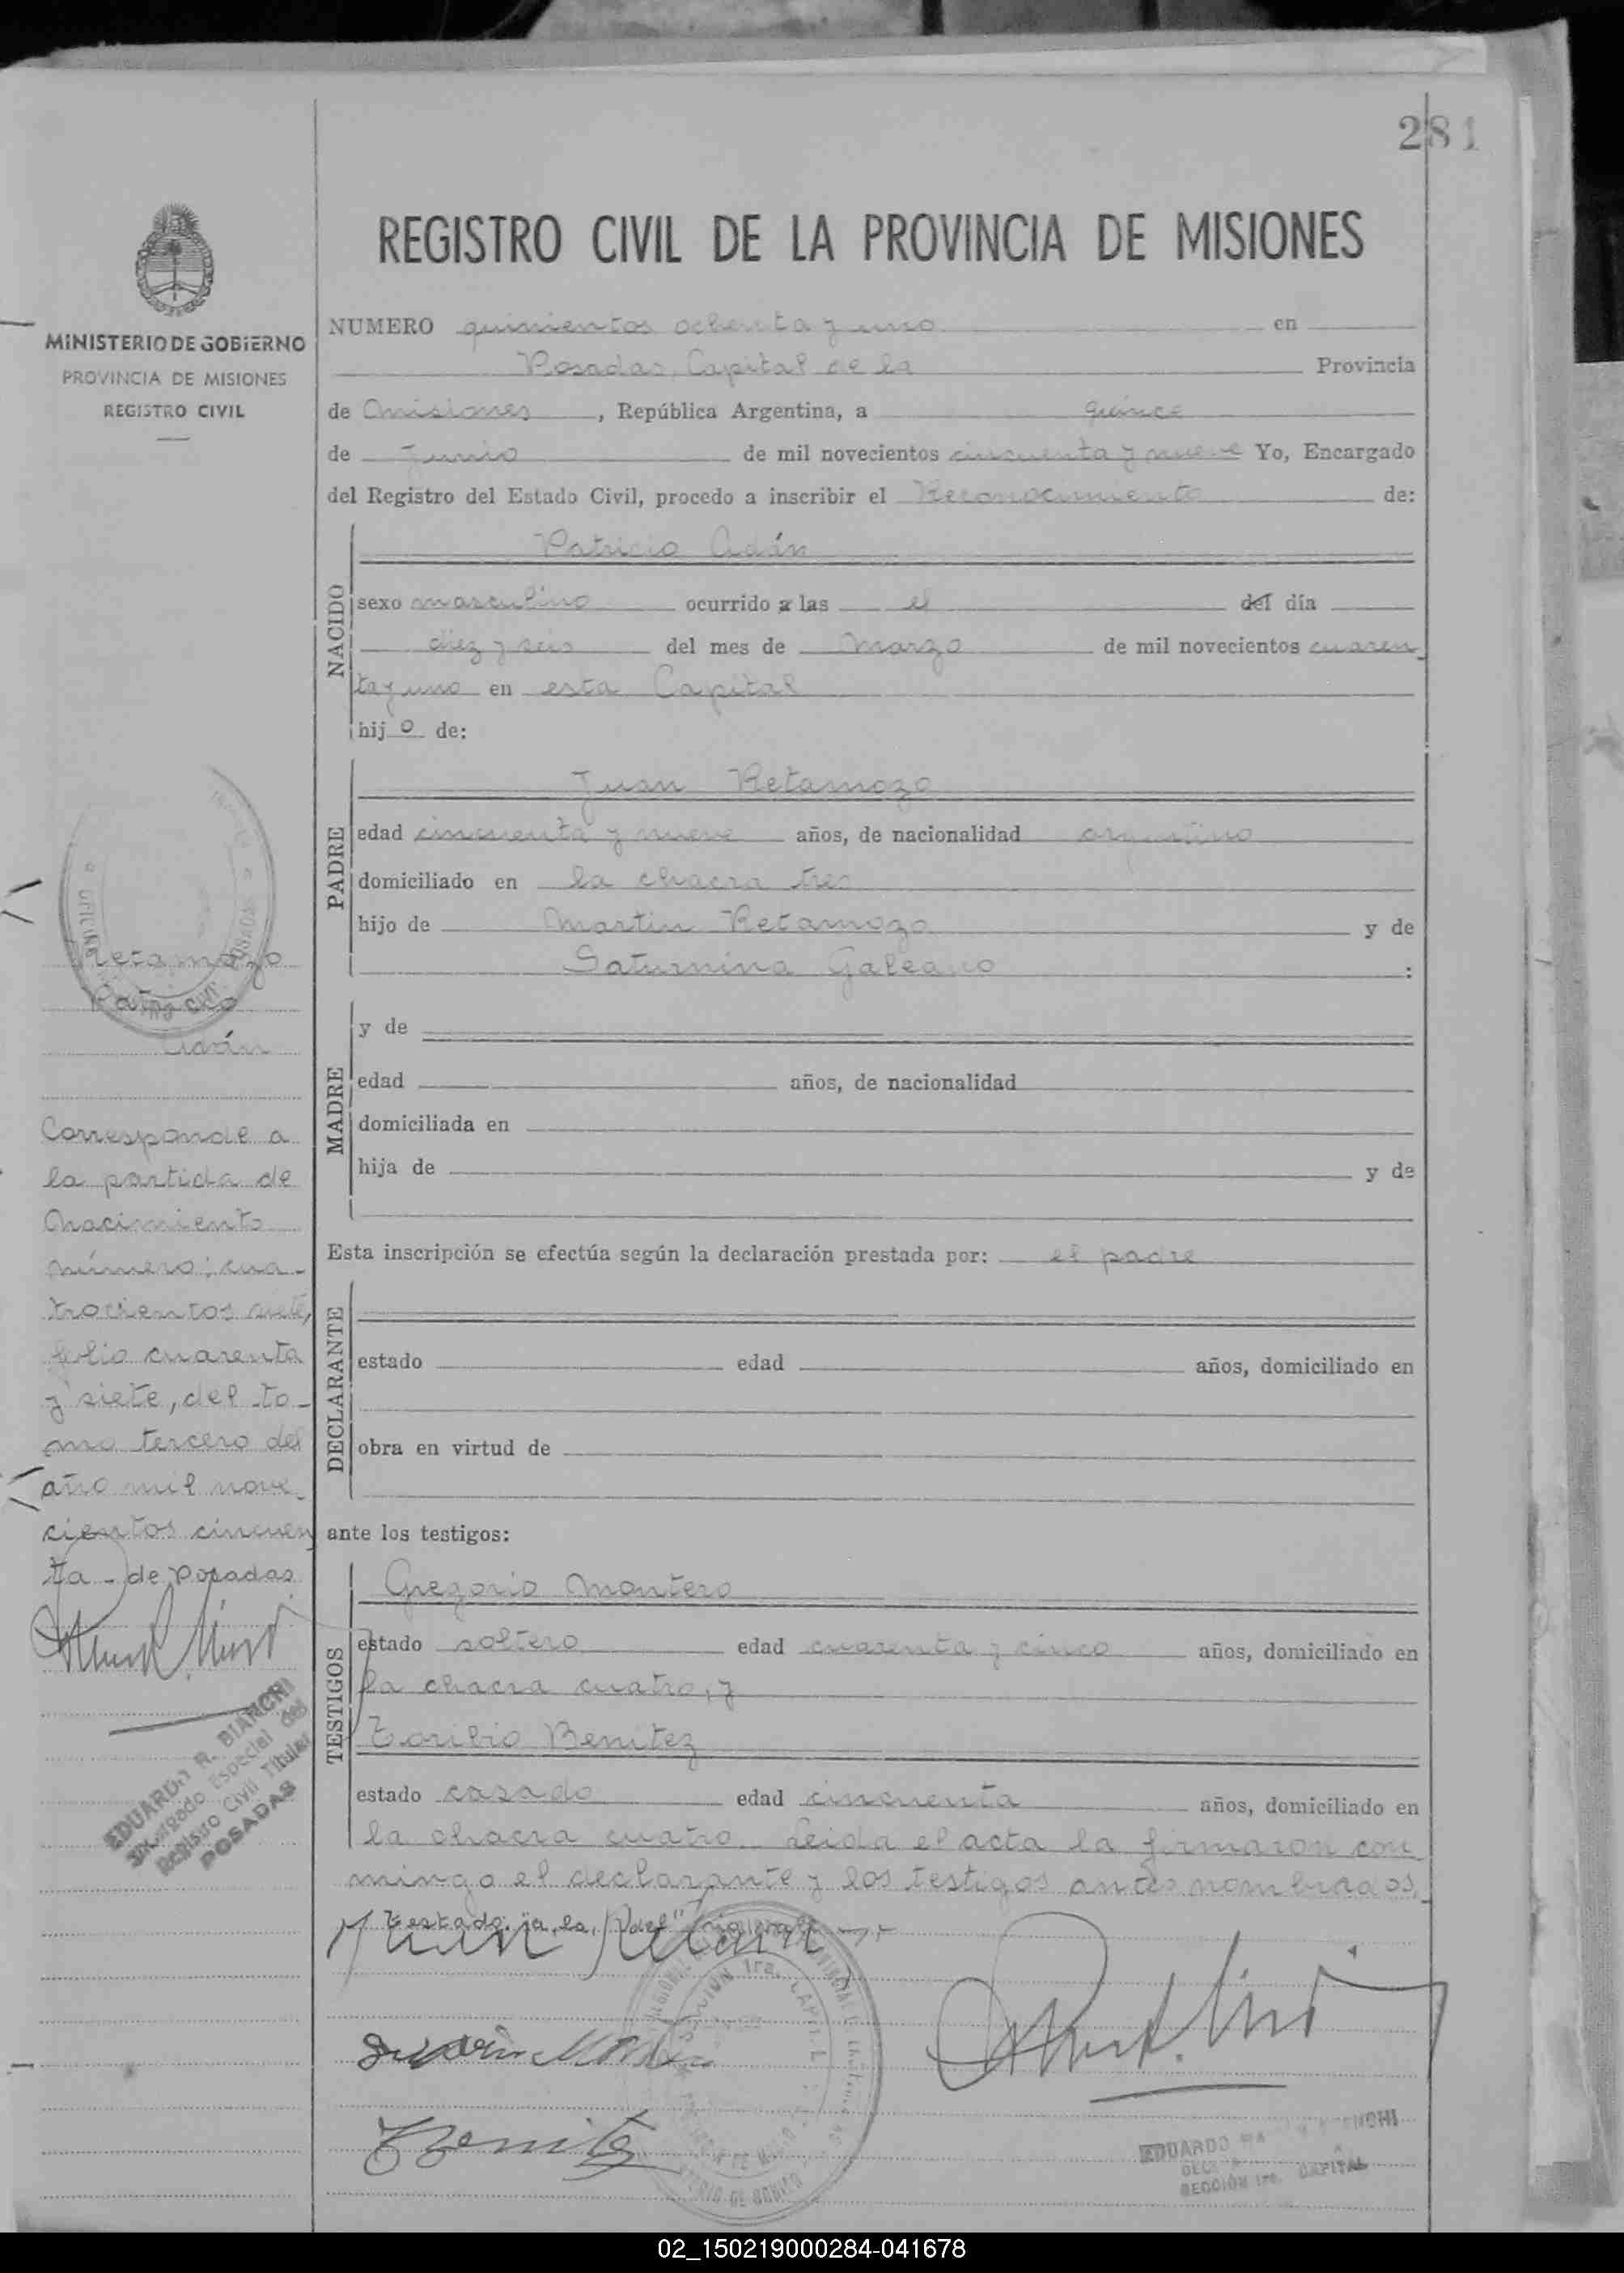 281
REGISTRO CIVIL DE LA PROVINCIA DE MISIONES
MINISTERIO DE GOBIERNO
PROVINCIA DE MISIONES
REGISTRO CIVIL
NUMERO quinientos ochenta y uno en
Posadas, Capital de la Provincia
de Misiones, República Argentina, a quince
de Junio de mil novecientos cincuenta y nueve Yo, Encargado
del Registro del Estado Civil, procedo a inscribir el Reconocimiento de:
NACIDO
Patricio Adán
sexo masculino ocurrido a las el del día
diez y seis del mes de Marzo de mil novecientos cuaren
ta y uno en esta Capital
hijo de:
PADRE
Juan Retamozo
edad cincuenta y nueve años, de nacionalidad argentino
domiciliado en la chacra tres
hijo de Martin Retamozo y de
Saturnina Galeano :
MADRE
y de
edad años, de nacionalidad
domiciliada en
hija de y de
Esta inscripción se efectúa según la declaración prestada por: el padre
DECLARANTE
estado edad años, domiciliado en
obra en virtud de
ante los testigos:
TESTIGOS
Gregorio Montero
estado soltero edad cuarenta y cinco años, domiciliado en
la chacra cuatro, y
Toribio Benitez
estado casado edad cincuenta años, domiciliado en
la chacra cuatro. Leida el acta la firmaron con
migo el declarante y los testigos antes nombrados.
Testado: "a, las, del"
Retamozo
Patricio
Adán
Corresponde a
la partida de
Nacimiento
número; cua-
trocientos siete,
folio cuarenta
y siete, del to-
mo tercero del
año mil nove-
cientos cincuen
ta - de Posadas
EDUARDO R. BIANCHI
Encargado Especial del
Registro Civil Titular
POSADAS
EDUARDO
SECCIÓN 1ra. CAPITAL
02_150219000284-041678